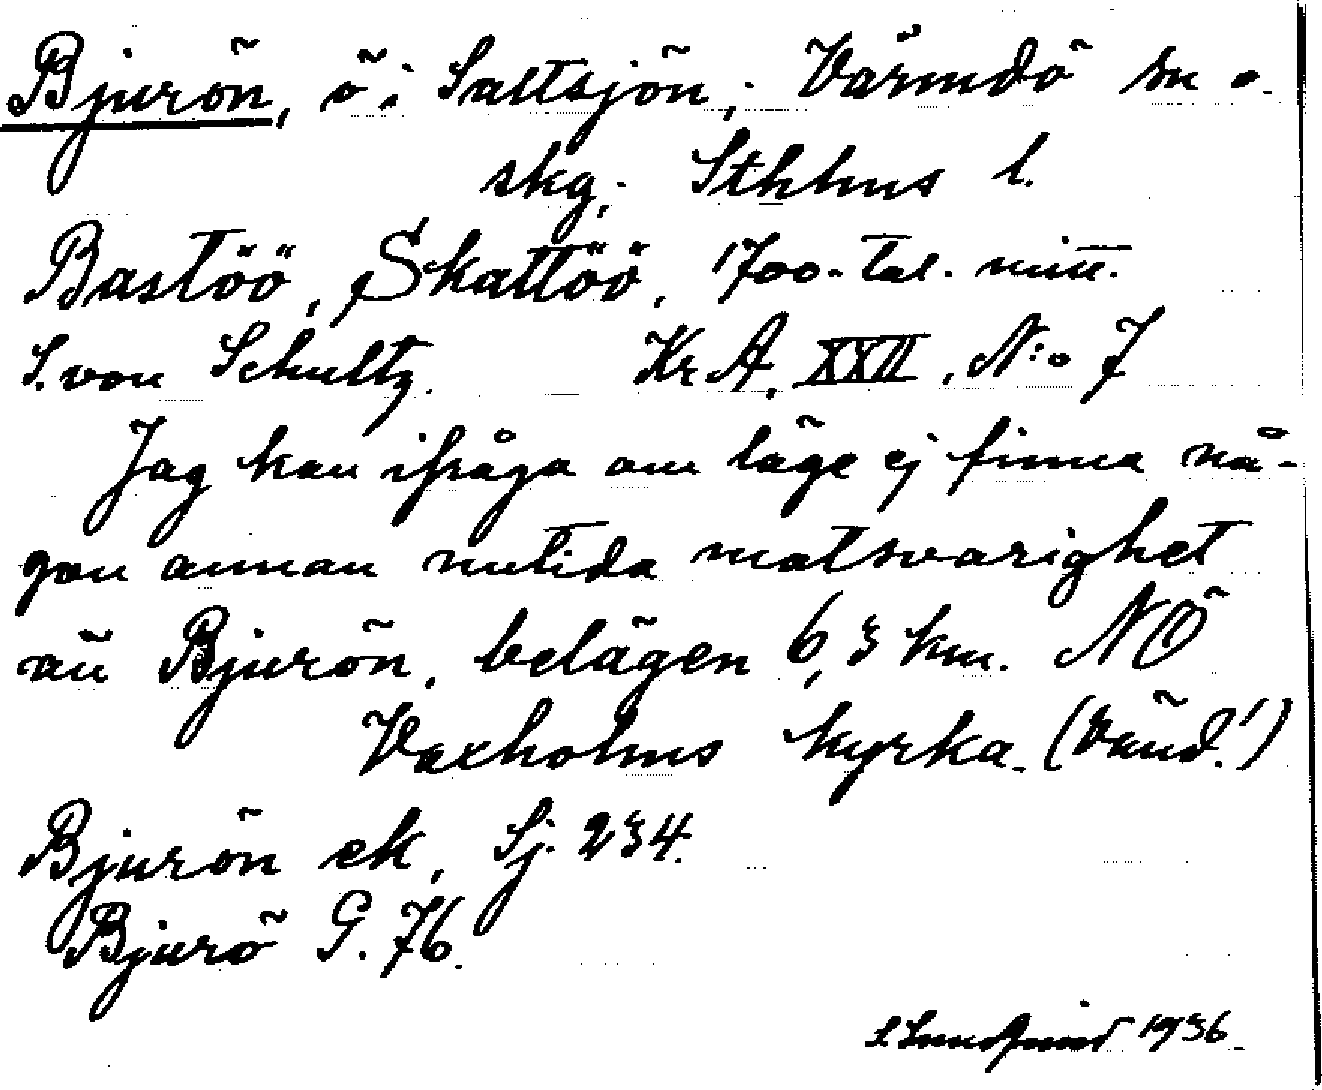 Bjurön, ö i Saltsjön, Värmdö sn o.
skg, Sthlms l.
Bastöö, Skattöö, 1700-tal. mitt.
S. von Schultz. Kr A, XXII, N:o 7
Jag kan ifråga om läge ej finna nå-
gon annan nutida motsvarighet
än Bjurön, belägen 6,3 km. NÖ
Vaxholms kyrka.
Bjurön ek, Sj. 234.
Bjurö G. 76.
1936